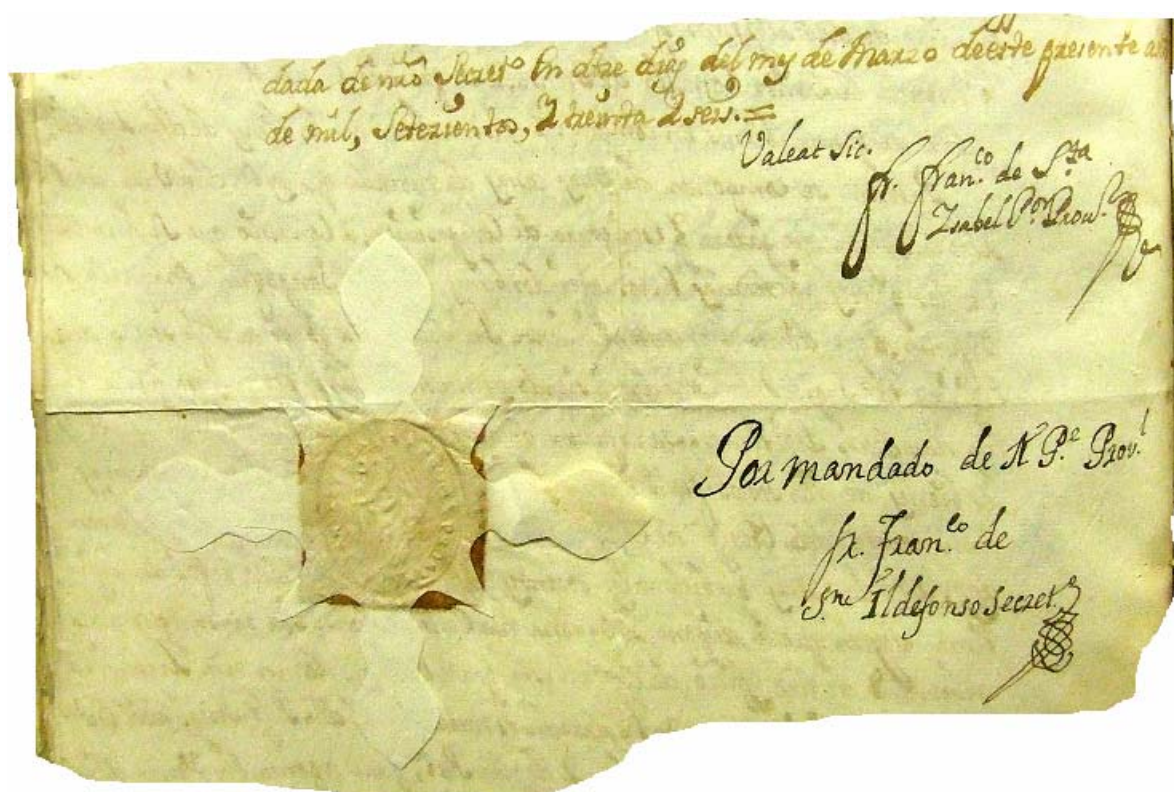 dada de nro Secret.º En dze diez del mes de Marzo de este presente a
de mil, Setezientos, Y treinta Y seis.=
Valeat Sic.
fr. fran.co de S.ta
Ysabel P.or Prov.l
Por mandado de N P.e Prov.l
fr. Fran.co de
Ildefonso Secret.º